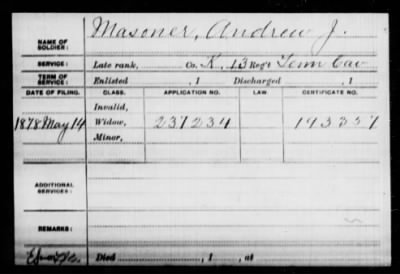 NAME OF SOLDIER: Masoner, Andrew J.
SERVICE: Late rank, Co. K, 13 Reg't Tenn Cav
TERM OF SERVICE: Enlisted , 1 Discharged , 1
DATE OF FILING. CLASS. APPLICATION NO. LAW. CERTIFICATE NO.
Invalid,
1878 May 14 Widow, 237234 193357
Minor,
ADDITIONAL SERVICES:
REMARKS:
Died , 1 , at